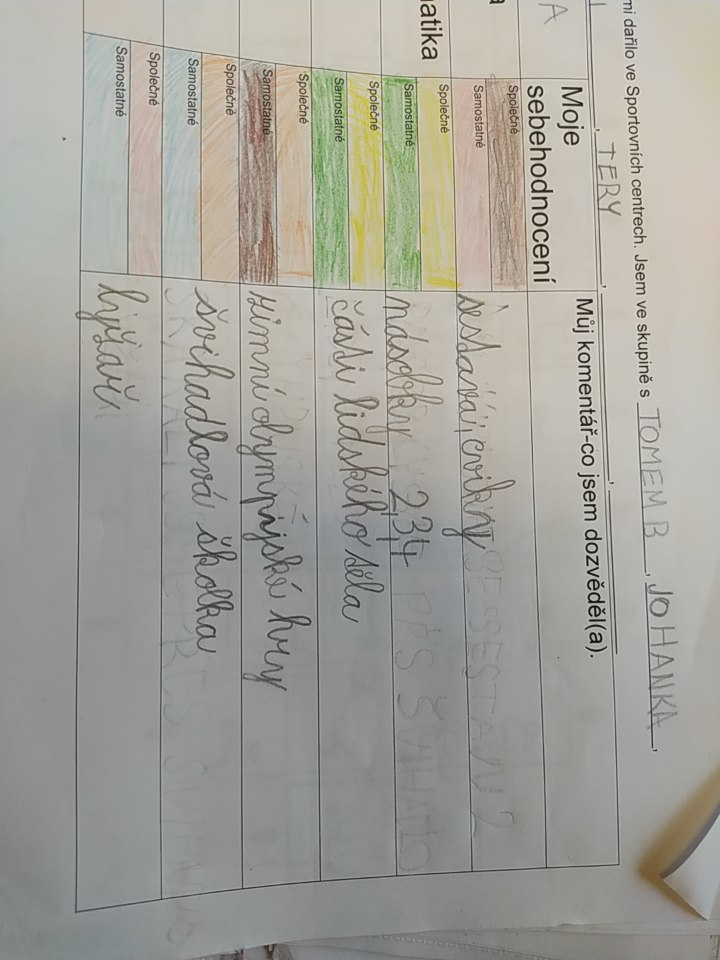 mi dařilo ve Sportovních centrech. Jsem ve skupině s TOMEM B, JOHANKA,
TERY,
A
Moje sebehodnocení
Můj komentář-co jsem dozvěděl(a).
a
Společné
Samostatné
atika
Společné
Samostatné
násobky 2,3,4
Společné
Samostatné
části lidského těla
Společné
Samostatné
zimní olympijské hry
Společné
Samostatné
švihadlová školka
Společné
Samostatné
lyžaři